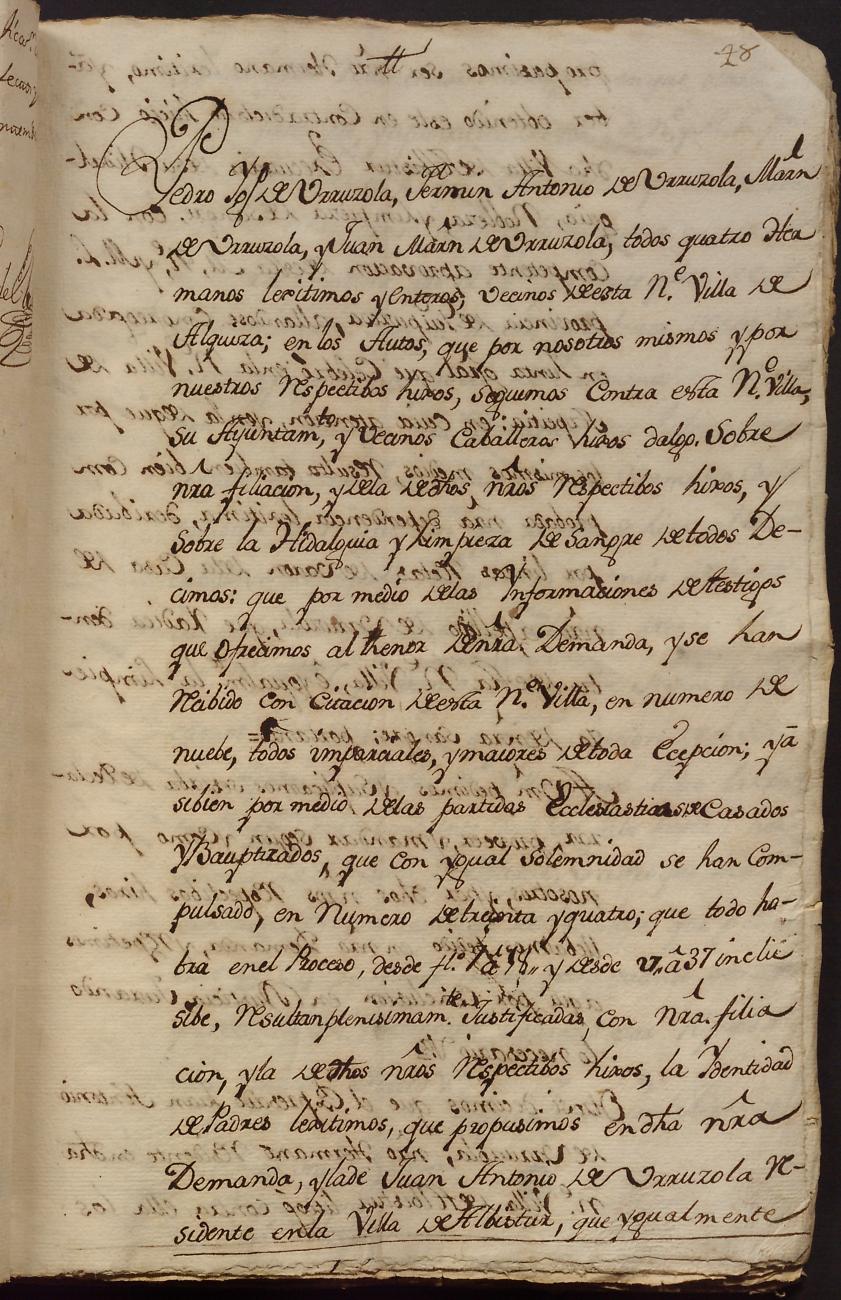 48
Pedro Jph de Urruzola, y Fermin Antonio de Urruzola, Marn
de Urruzola, y Juan Marn de Urruzola, todos quatro Her
manos lexitimos y enteros, vecinos de esta N.e Villa de
Alquiza; en los Autos, que por nosotros mismos y por
nuestros Respectibos hixos, seguimos Contra esta N.e Villa,
su Ayuntam.to, y vecinos Caballeros hixos dalgo. Sobre
nra filiacion, y dela de dhos nros Respectibos hixos, y
Sobre la Hidalguia y Limpieza de Sangre de todos De-
cimos: que por medio delas Ynformaciones de testigos
que Ofrecimos al thenor de nra. Demanda, y se han
Recibido con Citacion de esta N.e Villa, en numero de
nuebe, todos imparciales, y maiores de toda Ecepcion; y a
sibien por medio delas partidas Ecclesiasticas de Casados
y Bauptizados, que con ygual Solemnidad se han Com-
pulsado, en Numero de treinta y quatro; que todo ha-
bra enel Proceso, desde f.o y desde â 37 inclu
sibe, Resultan plenisimam.te Justificadas, con Nra. filia
cion, y la de dhos nros Respectibos hixos, la Ydentidad
de Padres lexitimos, que propusimos en dha nra
Demanda, y la de Juan Antonio de Urruzola Re-
sidente en la Villa de Albistur, que ygualmente